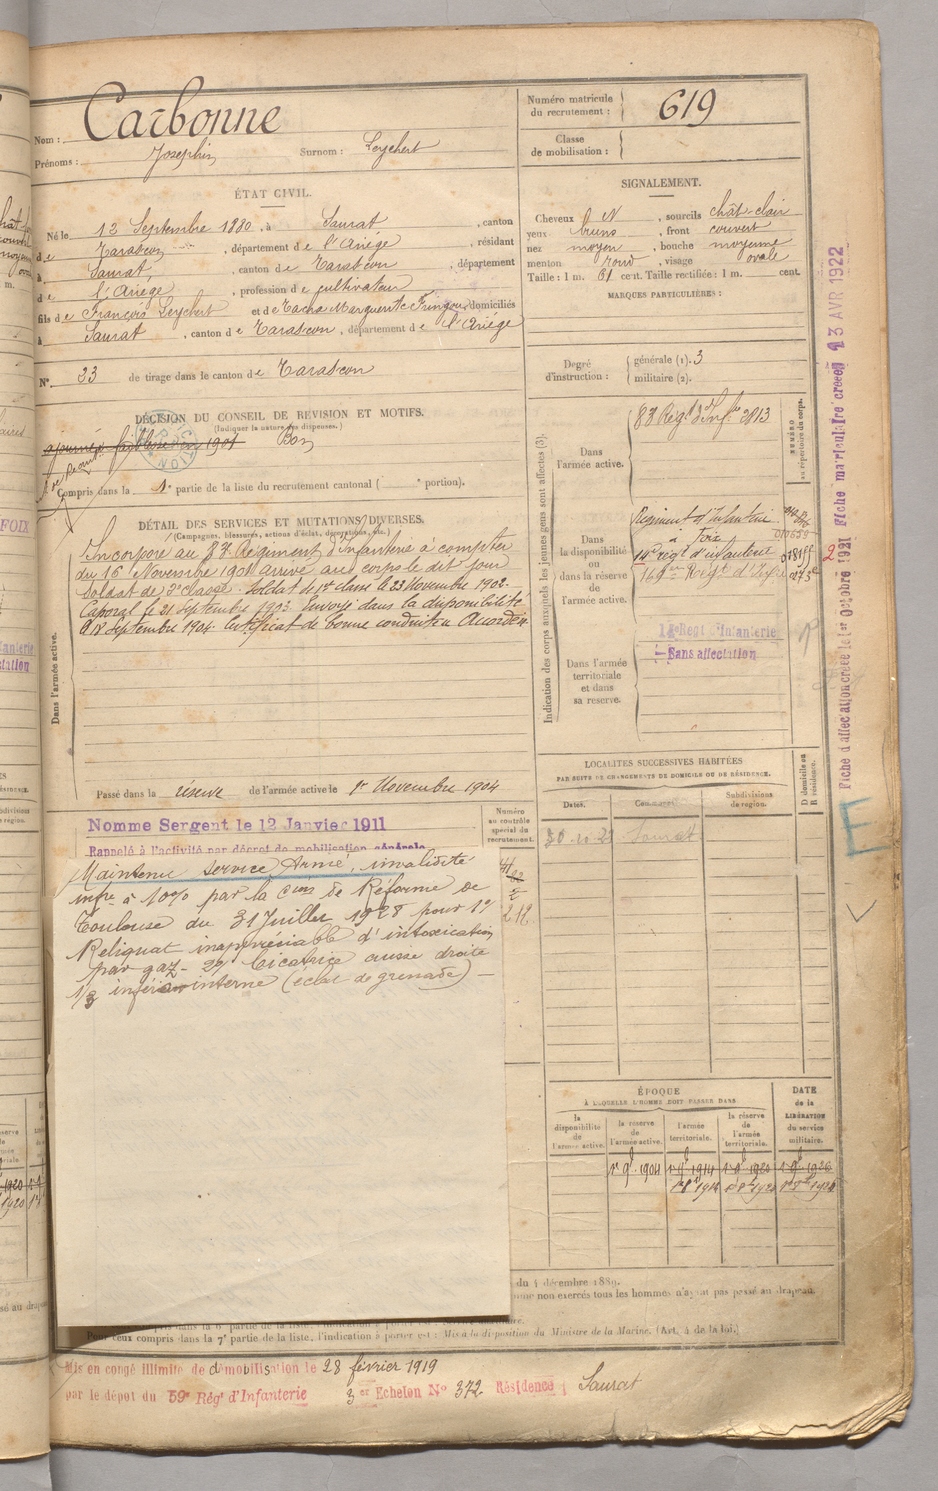 Nom : Carbonne
Prénoms : Josephin Surnom : Leychert
Numéro matricule du recrutement : 619
Classe de mobilisation :
ÉTAT CIVIL.
Né le 13 Septembre 1880, à Saurat, canton
de Tarascon, département de l'Ariège, résidant
à Saurat, canton de Tarascon, département
de l'Ariège, profession de cultivateur
fils de François Leychert et de Marguerite domiciliés
à Saurat, canton de Tarascon, département de l'Ariège
N° 33 de tirage dans le canton de Tarascon
SIGNALEMENT.
Cheveux N, sourcils chât-clair
yeux bruns, front couvert
nez moyen, bouche moyenne
menton rond, visage ovale
Taille : 1 m. 61 cent. Taille rectifiée : 1 m. cent.
MARQUES PARTICULIÈRES :
Degré d'instruction : générale (1). 3
militaire (2).
DÉCISION DU CONSEIL DE RÉVISION ET MOTIFS.
(Indiquer la nature des dispenses.)
1901 Bon
Compris dans la 1e partie de la liste du recrutement cantonal ( e portion).
DÉTAIL DES SERVICES ET MUTATIONS DIVERSES.
(Campagnes, blessures, actions d'éclat, décorations, etc.)
Dans l'armée active.
Incorporé au 83e Régiment d'Infanterie à compter
du 16 Novembre 1901 arrivé au corps le dit jour
Soldat de 2e classe. Soldat de 1re classe le 23 Novembre 1902.
Caporal le 21 Septembre 1903. Envoyé dans la disponibilité
le 18 Septembre 1904. Certificat de bonne conduite Accordé.
Passé dans la réserve de l'armée active le 1er Novembre 1904
Indication des corps auxquels les jeunes gens sont affectés (3).
NUMÉRO au répertoire du corps.
Dans l'armée active. 83 Régt d'Infie 2813
Dans la disponibilité ou dans la réserve de l'armée active.
Régiment d'Infanterie
à Foix
14e régt d'infanterie
Dans l'armée territoriale et dans sa réserve.
Régt d'Infanterie
Sans affectation
LOCALITÉS SUCCESSIVES HABITÉES
PAR SUITE DE CHANGEMENTS DE DOMICILE OU DE RÉSIDENCE.
Dates. Communes. Subdivisions de région. D domicile ou R résidence.
Saurat
Numéro au contrôle spécial du recrutement.
Nommé Sergent le 12 Janvier 1911
Rappelé à l'activité par décret de mobilisation générale
Maintenu service Armé, invalidité
infre à 10% par la Cion de Réforme de
Toulouse du 31 Juillet 1928 pour 1°/
Reliquat inappréciable d'intoxication
par gaz - 2°/ Cicatrice cuisse droite
1/3 inféro interne (éclat de grenade) -
ÉPOQUE
À LAQUELLE L'HOMME DOIT PASSER DANS
la disponibilité de l'armée active.
la réserve de l'armée active.
l'armée territoriale.
la réserve de l'armée territoriale.
DATE de la LIBÉRATION du service militaire.
1er 9bre 1904 1er 9bre 1914 1er 9bre 1920 1er 9bre 1926
du 4 décembre 1889.
Pour ceux compris dans la 7e partie de la liste, l'indication à porter est : Mis à la disposition du Ministre de la Marine. (Art. 4 de la loi.)
Mis en congé illimité de démobilisation le 28 février 1919
par le dépôt du 59e Rég' d'Infanterie 3er Echelon N° 372 Résidence : Saurat
Fiche d'affectation créée le 1er Octobre 1921 Fiche matriculaire créée 13 AVR 1922